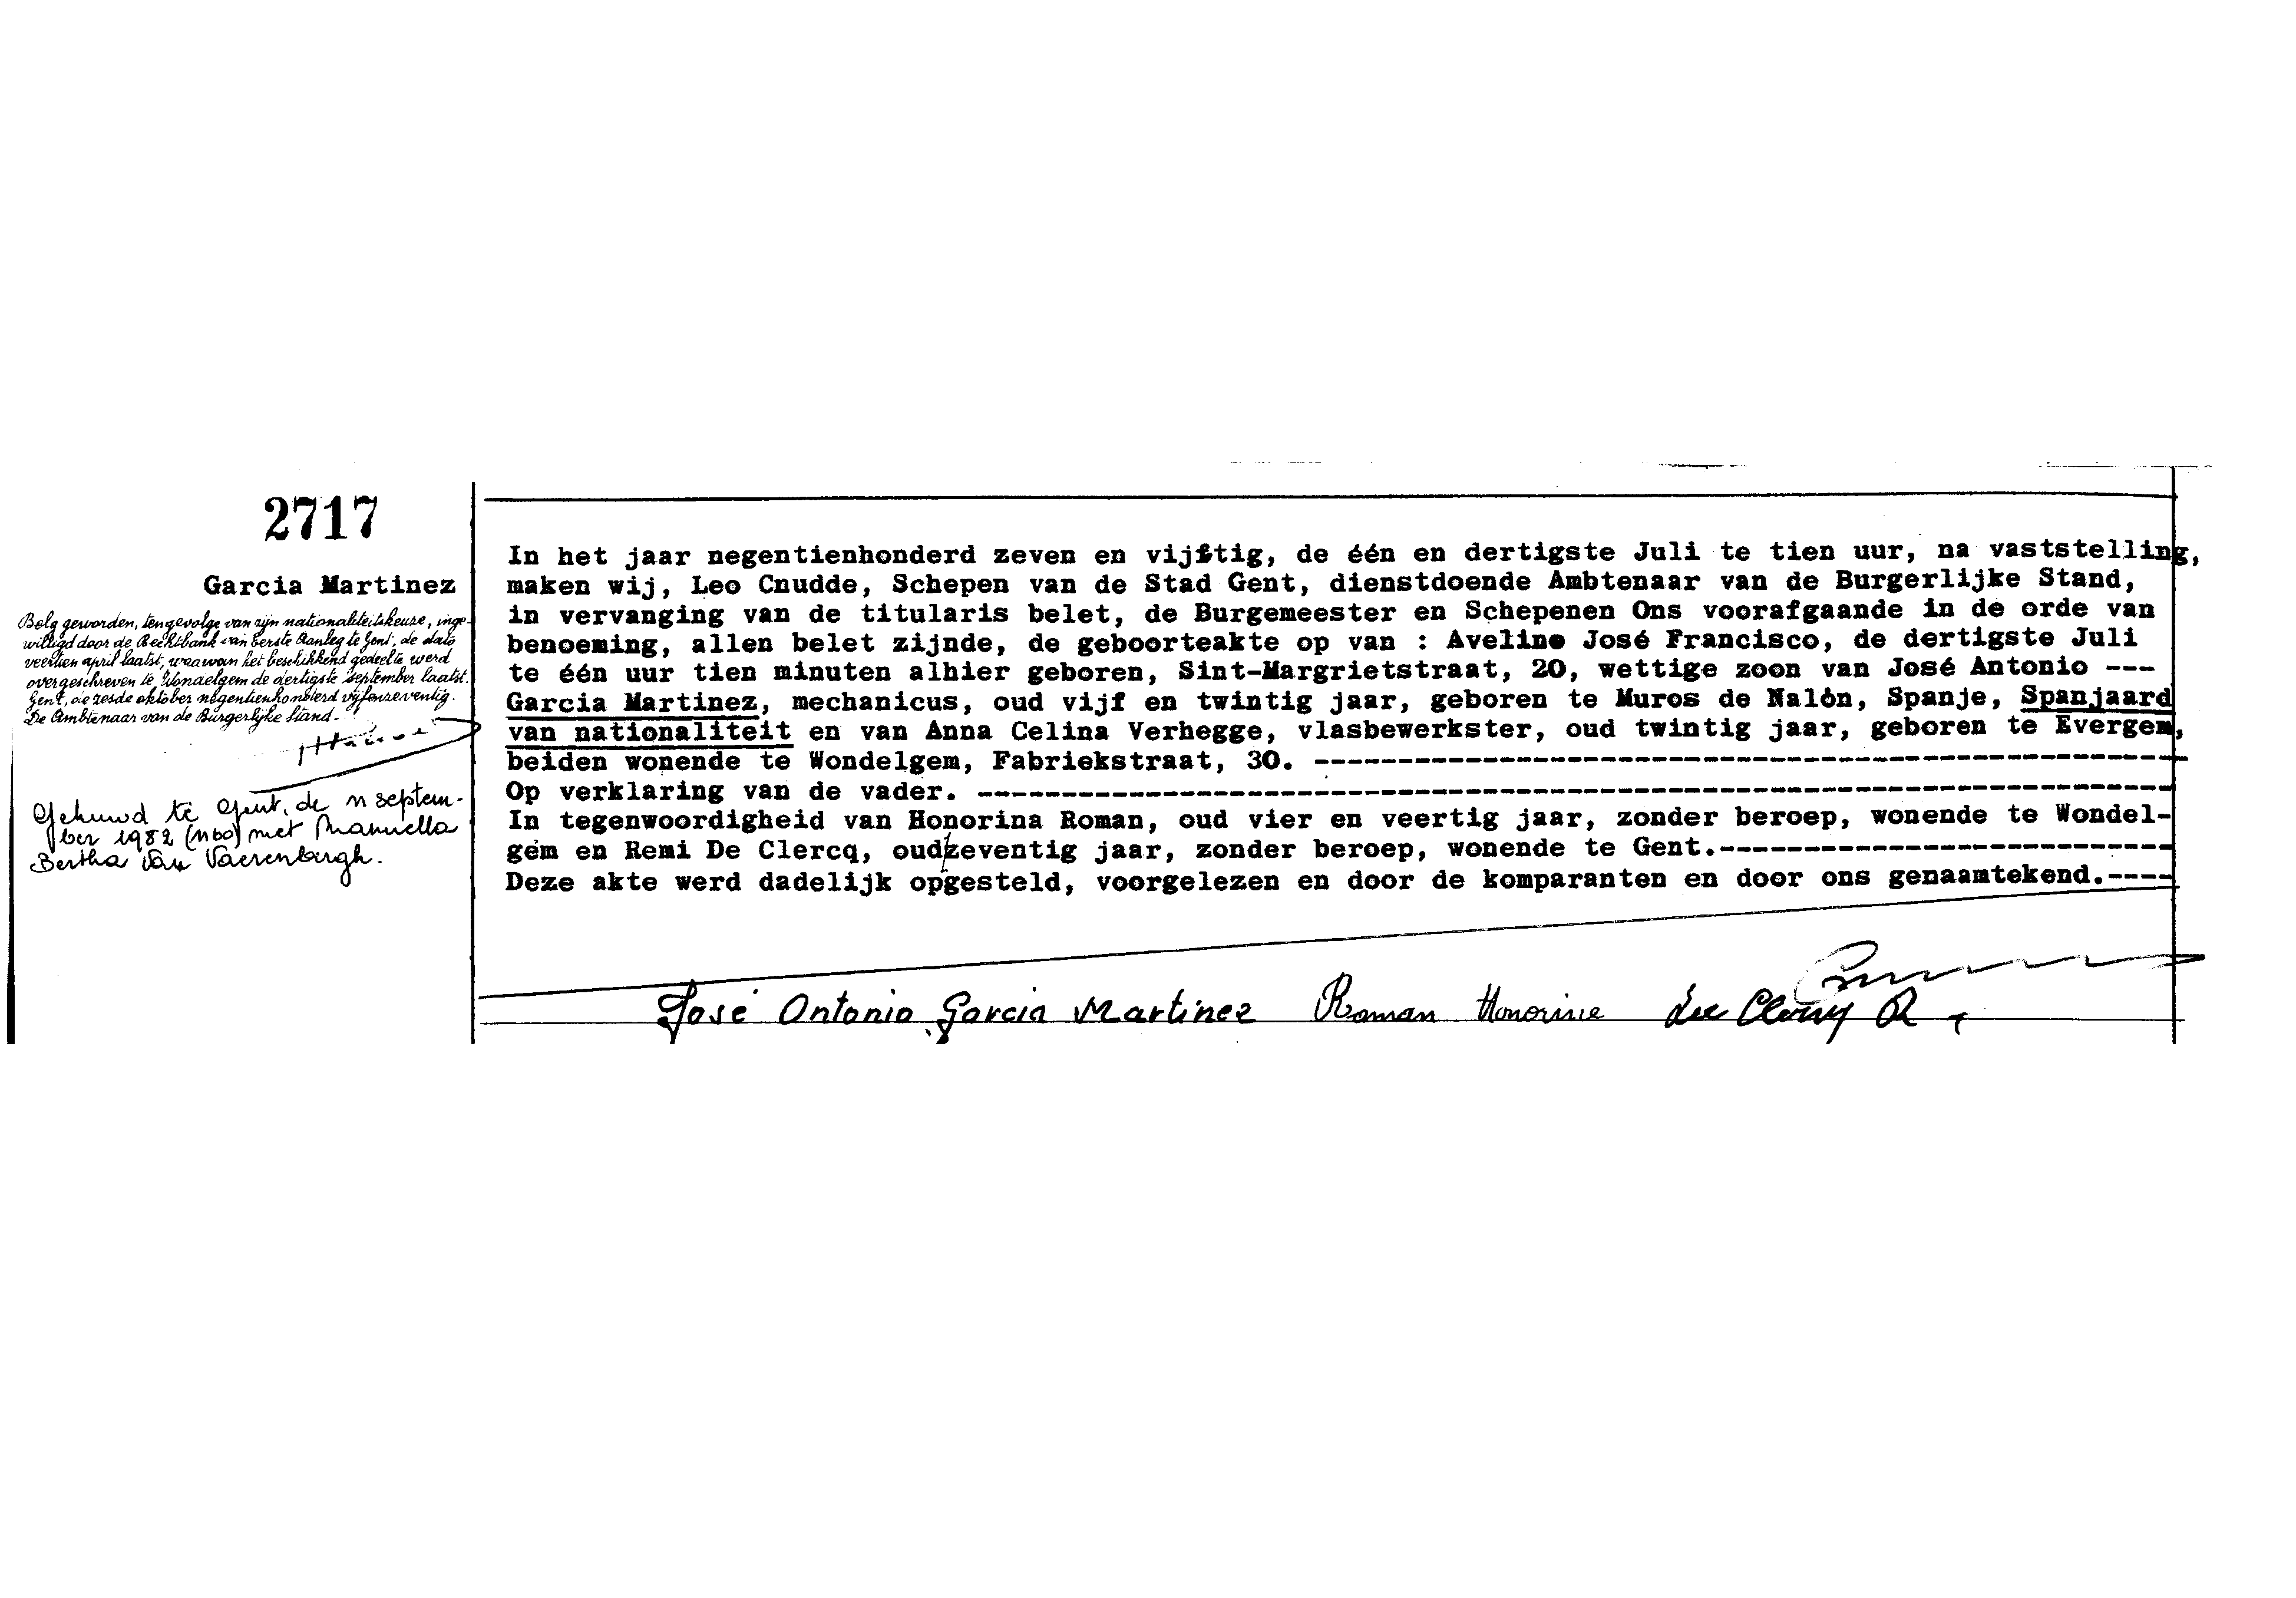 2717
Garcia Martinez
Belg geworden, tengevolge van zijn nationaliteitskeuze, inge-
willigd door de Rechtbank van Eerste Aanleg te Gent, de dato
veertien april laatst, waarvan het beschikkend gedeelte werd
overgeschreven te Wondelgem de dertigste september laatst.
Gent, de zesde oktober negentienhonderd vijfenzeventig.
De Ambtenaar van de Burgerlijke Stand.
Gehuwd te Gent, de 11 septem-
ber 1982 (1160) met Manuella
Bertha Van Vaerenbergh.
In het jaar negentienhonderd zeven en vijftig, de één en dertigste Juli te tien uur, na vaststelling,
maken wij, Leo Cnudde, Schepen van de Stad Gent, dienstdoende Ambtenaar van de Burgerlijke Stand,
in vervanging van de titularis belet, de Burgemeester en Schepenen Ons voorafgaande in de orde van
benoeming, allen belet zijnde, de geboorteakte op van : Avelino José Francisco, de dertigste Juli
te één uur tien minuten alhier geboren, Sint-Margrietstraat, 20, wettige zoon van José Antonio ---
Garcia Martinez, mechanicus, oud vijf en twintig jaar, geboren te Muros de Nalón, Spanje, Spanjaard
van nationaliteit en van Anna Celina Verhegge, vlasbewerkster, oud twintig jaar, geboren te Evergem,
beiden wonende te Wondelgem, Fabriekstraat, 30. ----------------------------------------------------
Op verklaring van de vader. ------------------------------------------------------------------------
In tegenwoordigheid van Honorina Roman, oud vier en veertig jaar, zonder beroep, wonende te Wondel-
gem en Remi De Clercq, oud zeventig jaar, zonder beroep, wonende te Gent.---------------------------
Deze akte werd dadelijk opgesteld, voorgelezen en door de komparanten en door ons genaamtekend.----
José Antonio Garcia Martinez Roman Honorine De Clercq R